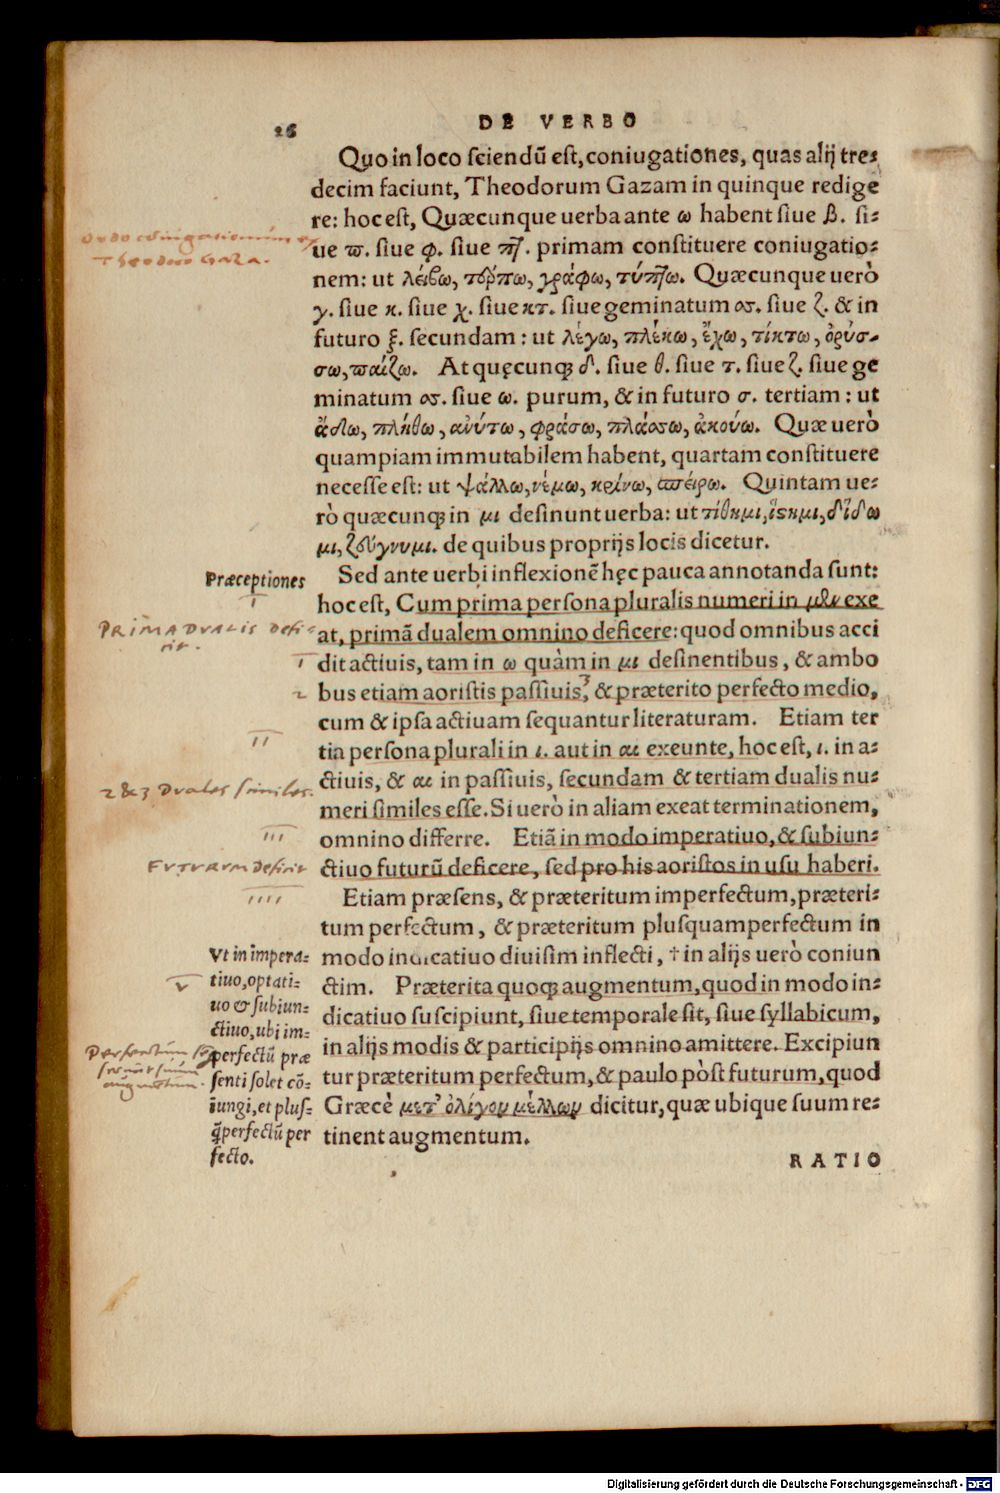 26
DE VERBO
Quo in loco sciendũ est, coniugationes, quas alij tre⸗
decim faciunt, Theodorum Gazam in quinque redige
re: hoc est, Quæcunque uerba ante ω habent siue β. si⸗
ue ϖ. siue φ. siue πτ. primam constituere coniugatio⸗
nem: ut λείβω, τέρπω, γράφω, τύπτω. Quæcunque uerò
γ. siue κ. siue χ. siue κτ. siue geminatum σσ. siue ζ. & in
futuro ξ. secundam: ut λέγω, πλέκω, ἔχω, τίκτω, ὀρύσ⸗
σω, παίζω. At quęcunq; δ. siue θ. siue τ. siue ζ. siue ge
minatum σσ. siue ω. purum, & in futuro σ. tertiam: ut
ᾄδω, πλήθω, ἀνύτω, φράσω, πλάσσω, ἀκούω. Quæ uerò
quampiam immutabilem habent, quartam constituere
necesse est: ut ψάλλω, νέμω, κρίνω, σπείρω. Quintam ue⸗
rò quæcunq; in μι desinunt uerba: ut τίθημι, ἵστημι, δίδω
μι, ζεύγνυμι. de quibus proprijs locis dicetur.
Præceptiones
Sed ante uerbi inflexionẽ hęc pauca annotanda sunt:
hoc est, Cum prima persona pluralis numeri in μεν exe
at, primã dualem omnino deficere: quod omnibus acci
dit actiuis, tam in ω quàm in μι desinentibus, & ambo
bus etiam aoristis passiuis, & præterito perfecto medio,
cum & ipsa actiuam sequantur literaturam. Etiam ter
tia persona plurali in ι. aut in αι exeunte, hoc est, ι. in a⸗
ctiuis, & αι in passiuis, secundam & tertiam dualis nu⸗
meri similes esse. Si uerò in aliam exeat terminationem,
omnino differre. Etiã in modo imperatiuo, & subiun⸗
ctiuo futurũ deficere, sed pro his aoristos in usu haberi.
Etiam præsens, & præteritum imperfectum, præteri⸗
tum perfectum, & præteritum plusquamperfectum in
modo indicatiuo diuisim inflecti, † in alijs uerò coniun
ctim. Præterita quoq; augmentum, quod in modo in⸗
dicatiuo suscipiunt, siue temporale sit, siue syllabicum,
in alijs modis & participijs omnino amittere. Excipiun
tur præteritum perfectum, & paulo pòst futurum, quod
Græcè μετ' ὀλίγον μέλλων dicitur, quæ ubique suum re⸗
tinent augmentum.
RATIO
Vt in impera⸗
tiuo, optati⸗
uo & subiun⸗
ctiuo, ubi im⸗
perfectũ præ
senti solet cõ⸗
iungi, et plus⸗
q̃perfectũ per
fecto.
Ordo coniugationum
Theodoro Gaza.
I
PRIMA DVALIS defi-
cit.
1
2
3
II
2 & 3 Duales similes.
III
FVTVRVM deficit
IIII
V
Perfectum
augmentum.
Digitalisierung gefördert durch die Deutsche Forschungsgemeinschaft - DFG